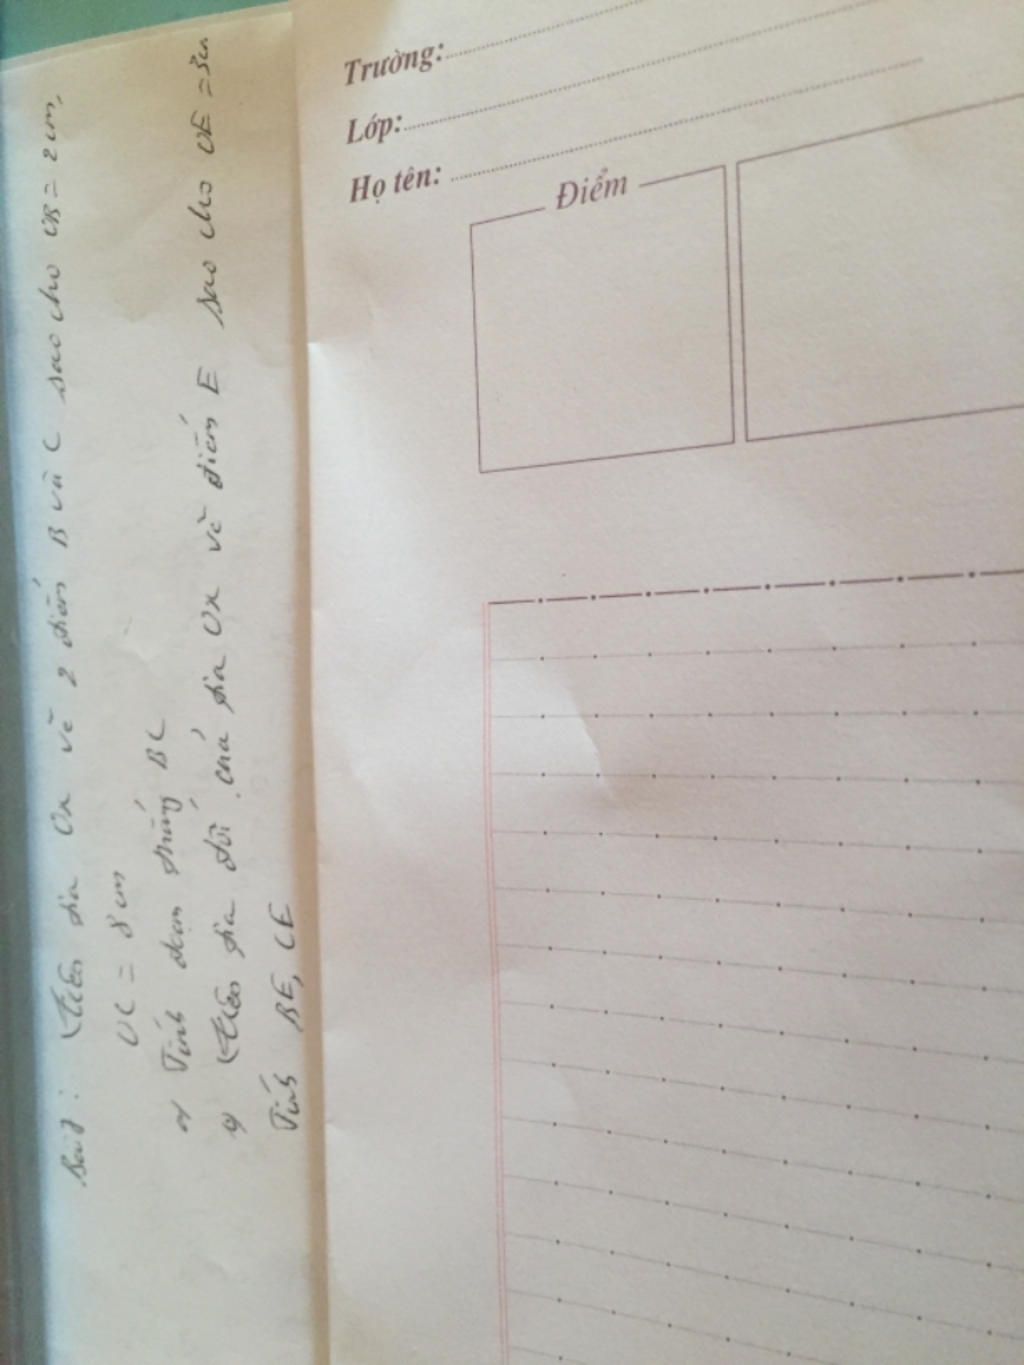 Bài 7: Trên tia Ox vẽ 2 điểm B và C sao cho OB = 2 cm,
OC = 8 cm
a) Tính đoạn thẳng BC
b) Trên tia đối của tia Ox vẽ điểm E sao cho OE = 3cm
Tính BE, CE
Trường:
Lớp:
Họ tên:
Điểm